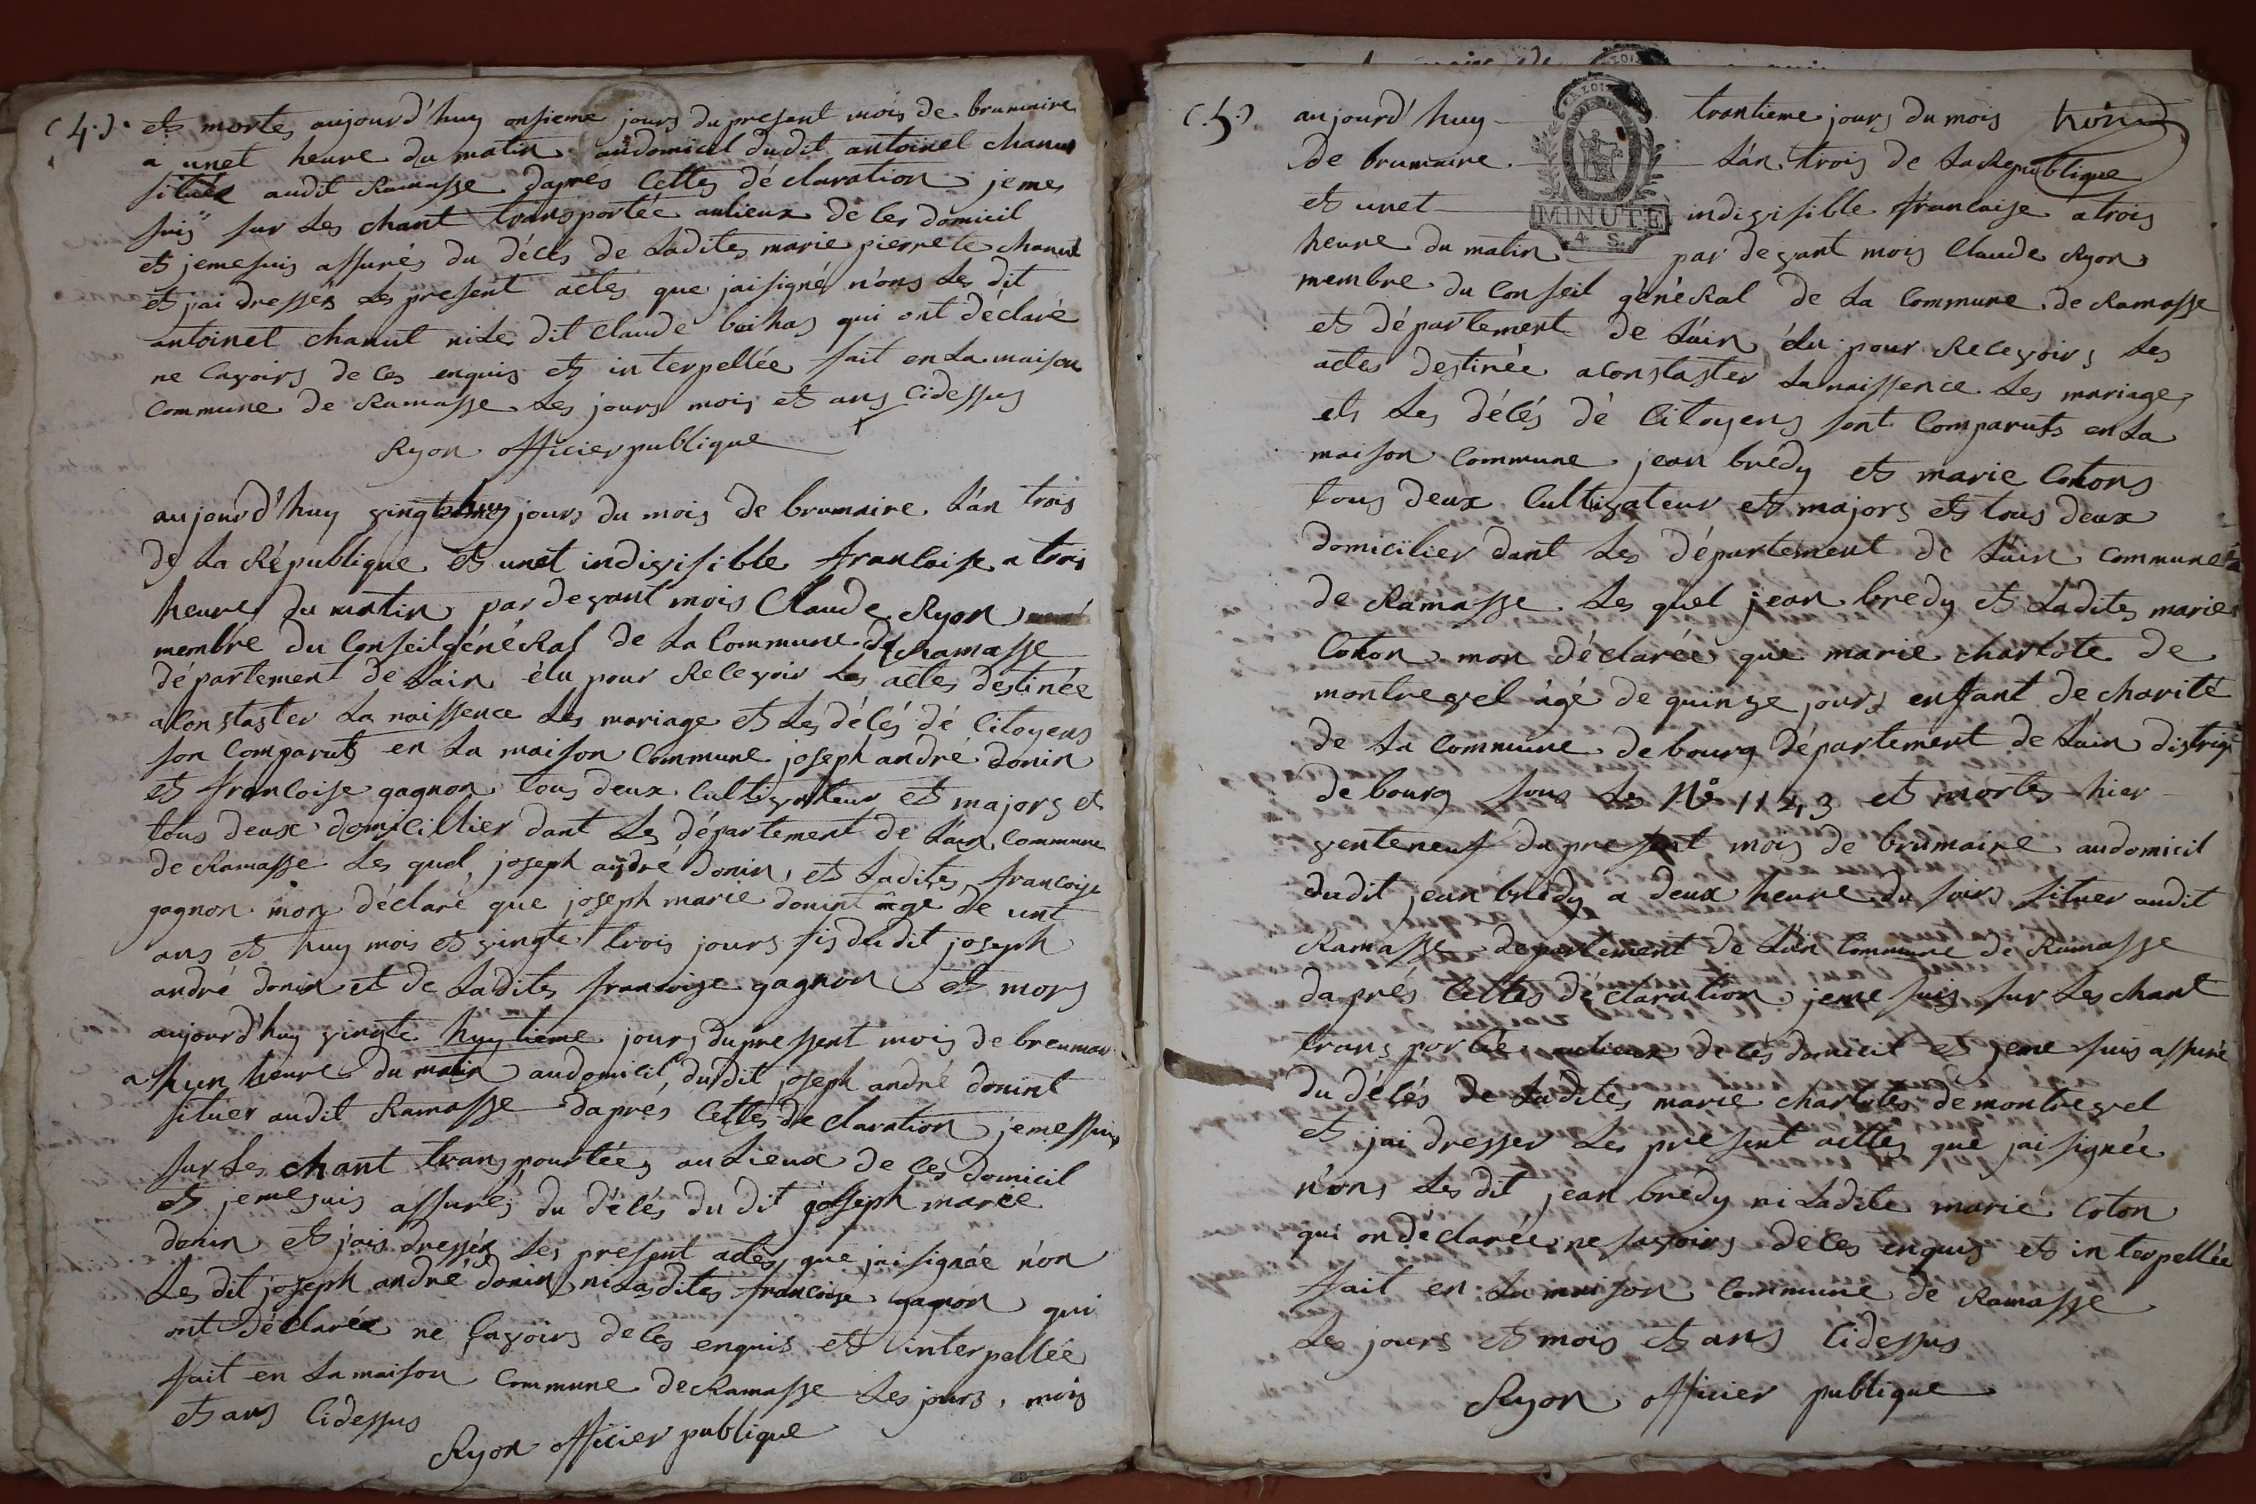 (4.).
et morte aujourd'huy onsieme jours du present mois de brumaire
a unet heure du matin audomicil dudit antoinet chanut
situéz audit Ramasse dapres Cettes déclaration jeme
suis sur Les chant transportée aulieux de Ces domicil
et jemesuis assurés du décés de Ladites marie pierrete chanut
et jai dressés Les present actes que jaisigné n'ons Les dit
antoinet chanut niLe dit Claude qui ont déclaré
ne Cavoirs de Ces enquis et interpellée fait en La maison
Commune de Ramasse Les jours mois et ans Cidessus
Ryon officier publique
aujourd'huy vingt jours du mois de brumaire L'an trois
de La République et unet indivisible francaise a trois
heure du matin pardevant mois Claude Ryon
membre du Conseil généRal de La Commune de Ramasse
département de L'ain élu pour Recevoir Les actes destinée
aConstaster La naissence Les mariage et Les décés dé Citoyens
son Comparuts en La maison Commune joseph andré donin
et francoise gagnon tous deux Cultivateur et majors et
tous deux domicillier dant Les département de L'ain Commune
de Ramasse Les quel joseph andré donin et Ladites francoise
gagnon mon déclaré que joseph marie donint âge de unt
ans et huy mois et vingte trois jours fis dudit joseph
andré donin et de Ladites francoise gagnon et mors
aujourd'huy vingte huytieme jours dupressent mois de breumair
a heure du matin audomicil dudit joseph andré donint
situer audit Ramasse daprés Cettes declaration jemessuis
sur Les chant transpourtées au Lieux de Ces domicil
et jemesuis assurés du décés du dit josseph marie
donin et j'ais dressés Les present actes que jaisignée n'on
Les dit joseph andré donin ni Lasdites francoise gagnon qui
ont déclaréz ne savoirs de Ces enquis et interpellée
fait en La maison Commune de Ramasse Les jours, mois
et ans Cidessus
Ryon officier publique
(.5.)
aujourd'huy trantieme jours du mois
de brumaire L'an trois de La Republique
et unet indivisible francaise a trois
MINUTE
4 S.
heure du matin par devant mois Claude Ryon
membre du Conseil généRal de La Commune de Ramasse
et département de L'ain élu pour Recevoirs Les
actes destinée aConstaster La naissence Les mariage
et Les décés dé Citoyens sont Comparuts en La
maison Commune jean bredy et marie Cotons
tous deux Cultivateur et majors et tous deux
domicilier dant Les département de L'ain Commune
de Ramasse Les quel jean bredy et Ladites marie
Coton mon déclarée que marie charlote de
montrevel âgé de quinze jours enfant de charité
de La Commune de bourg département de L'ain distriq
de bourg sous Les N° 1143 et mortes hier
venteneuf du present mois de brumaire audomicil
dudit jean bredy a deux heure du soirs situer audit
Ramasse departement de L'ain Commune de Ramasse
daprés Cettes déclaration jeme suis sur Les chant
transportée aulieux de Cés domicil et jeme suis assurée
du décés de Ladites marie charlotes demontrevel
et jai dresser Les present acttes que jai signée
n'ons Les dit jean bredy ni Ladite marie Coton
qui on déclarée ne savoirs de Ces enquis et interpellée
fait en La maison Commune de Ramasse
Les jours et mois et ans Cidessus
Ryon officier publique